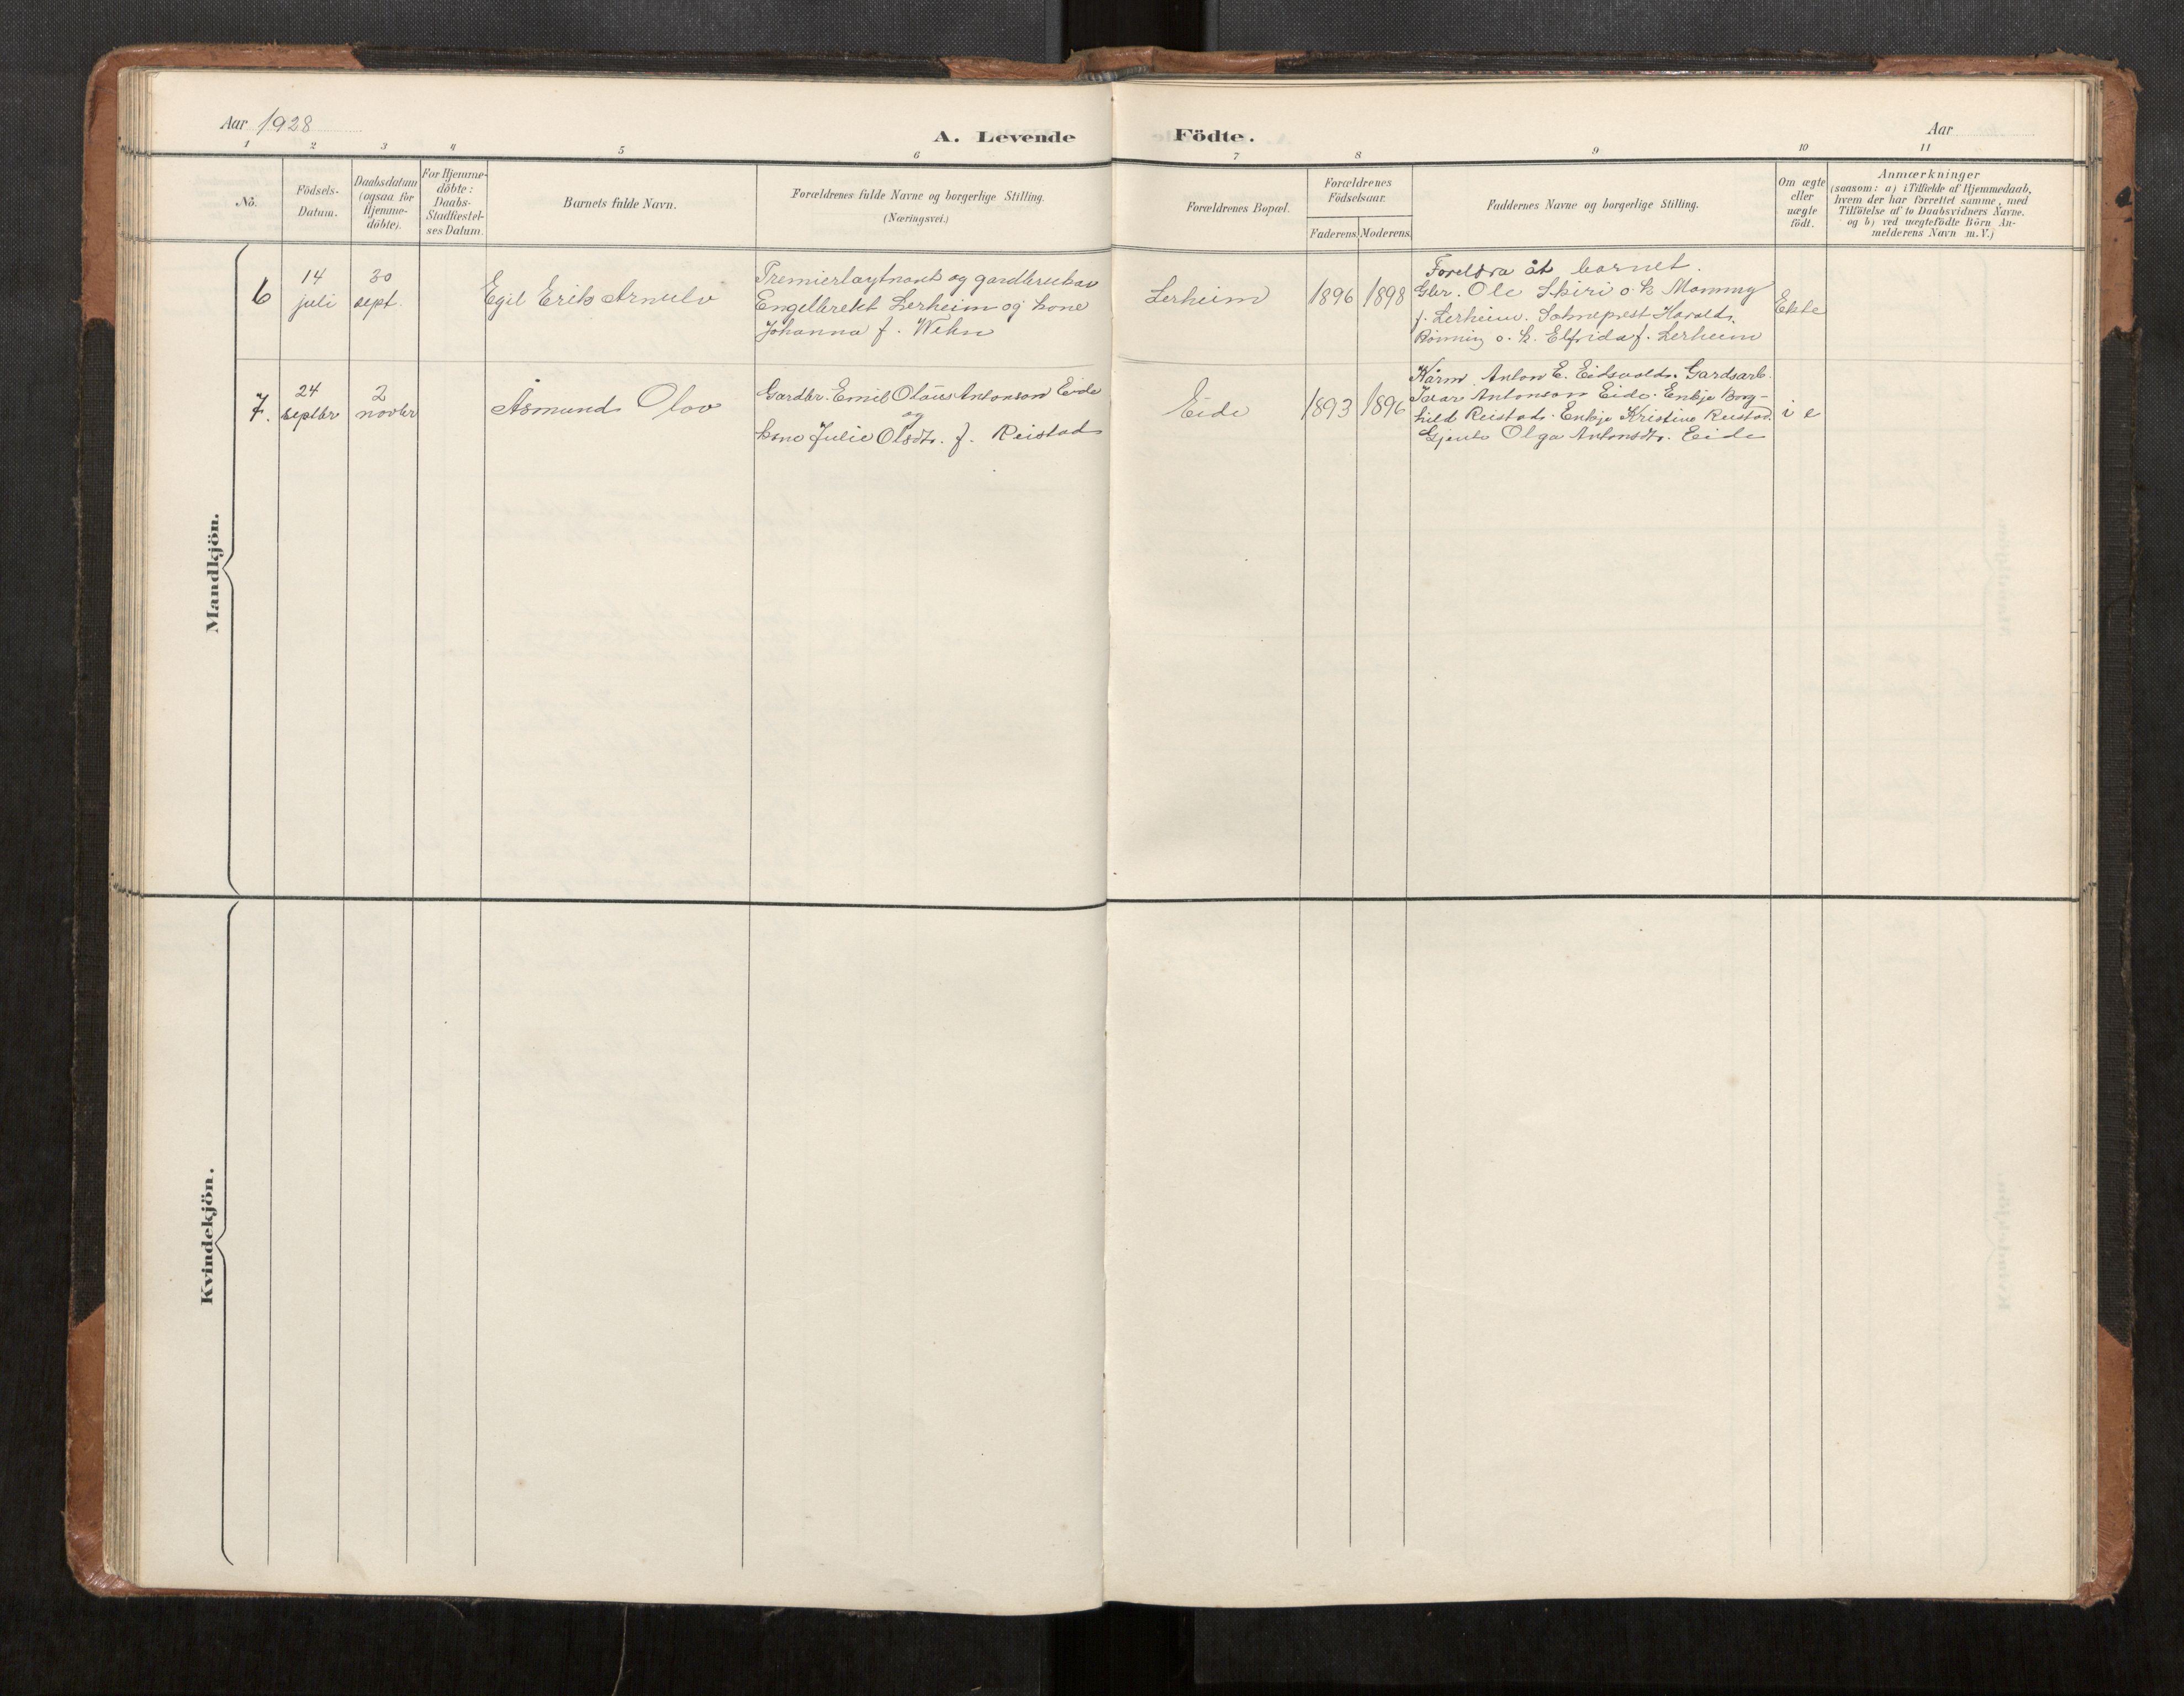 Aar 1928
A. Levende Födte.
Aar
1 2 3 4 5 6 7 8 9 10 11
No.
Födsels-
Datum.
Daabsdatum
(ogsaa for
Hjemme-
döbte).
For Hjemme-
döbte:
Daabs-
Stadfæstel-
ses Datum.
Barnets fulde Navn.
Forældrenes fulde Navne og borgerlige Stilling.
(Næringsvei.)
Forældrenes Bopæl.
Forældrenes
Födselsaar.
Faderens. Moderens.
Faddernes Navne og borgerlige Stilling.
Om ægte
eller
uægte
födt.
Anmærkninger
(saasom: a) i Tilfælde af Hjemmedaab,
hvem der har forrettet samme, med
Tilföielse af to Daabsvidners Navne.
og b) ved uægtefödte Börn An-
melderens Navn m. V.)
Mandkjön.
6
14
juli
30
sept.
Egil Erik Arnulv
Premierløytnant og gardbrukar
Engelbrekt Lerheim og kone
Johanna f. Wehn
Lerheim
1896 1898
Foreldra åt barnet.
Gbr. Ole Skiri o. k.
f. Lerheim. Sokneprest Harald
Rönning o. k. Elfrida f. Lerheim
Ekte
7.
24
septbr
2
novbr
Åsmund Olav
Gardbr. Emil Olaus Antonson Eide
og
kone Julie Olsdtr. f. Reistad
Eide
1893 1896
Kårm. Anton E. Eidsvold. Gardsarb.
Ivar Antonson Eide. Enkje Borg-
hild Reistad. Enkje Kristine Reistad.
Gjente Olga Antonsdtr. Eide
i e
Kvindekjön.